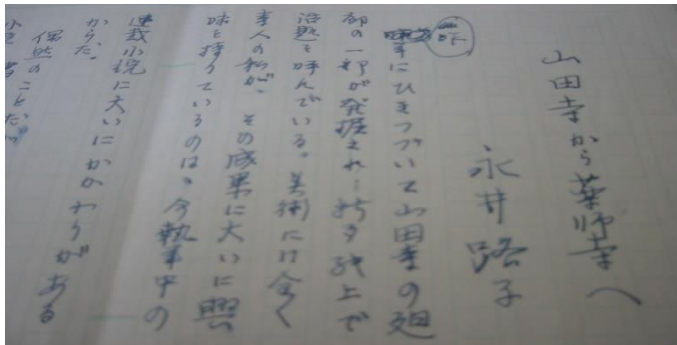 山田寺から薬師寺へ
永井路子
昨年にひきつづいて山田寺の廻
廊の一部が発掘され、新聞紙上で
話題を呼んでいる。美術には全く
素人の私が、その成果に大いに興
味を持っているのは、今執筆中の
連載小説に大いにかかわりがある
からだ。
偶然のことだが